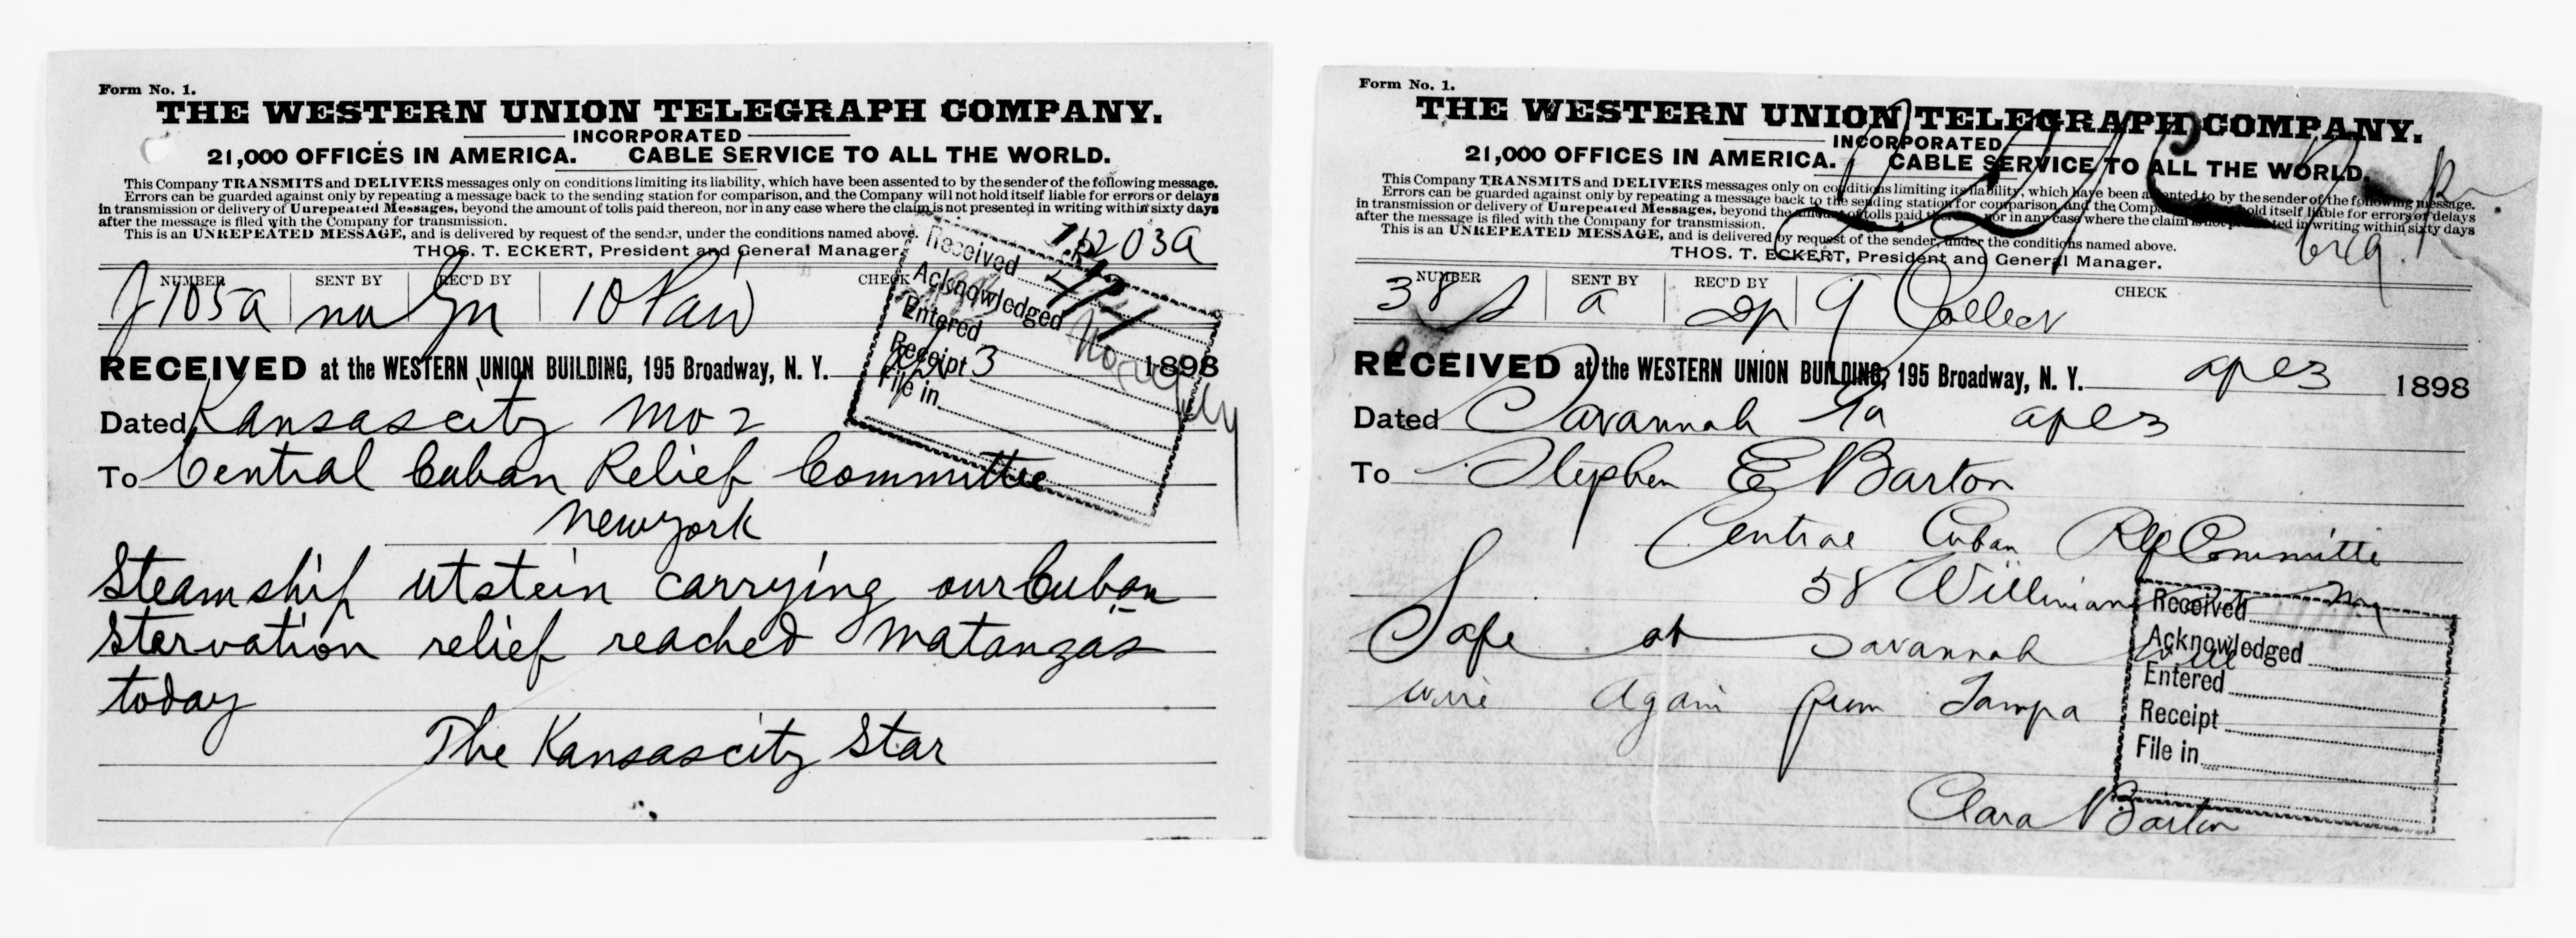 Form No. 1.
THE WESTERN UNION TELEGRAPH COMPANY.
INCORPORATED
21,000 OFFICES IN AMERICA. CABLE SERVICE TO ALL THE WORLD.
This Company TRANSMITS and DELIVERS messages only on conditions limiting its liability, which have been assented to by the sender of the following message.
Errors can be guarded against only by repeating a message back to the sending station for comparison, and the Company will not hold itself liable for errors or delays
in transmission or delivery of Unrepeated Messages, beyond the amount of tolls paid thereon, nor in any case where the claim is not presented in writing within sixty days
after the message is filed with the Company for transmission.
This is an UNREPEATED MESSAGE, and is delivered by request of the sender, under the conditions named above.
THOS. T. ECKERT, President and General Manager.
1203a
NUMBER SENT BY REC'D BY CHECK
J105a nu Gn 10 Paid
Received
Acknowledged
Entered
Receipt
File in
RECEIVED at the WESTERN UNION BUILDING, 195 Broadway, N. Y. 3 1898
Dated Kansascity Mo 2
To Central Cuban Relief Committee
Newyork
Steamship utstein carrying our Cuban
starvation relief reached Matanzas
today
The Kansascity Star
Form No. 1.
THE WESTERN UNION TELEGRAPH COMPANY.
INCORPORATED
21,000 OFFICES IN AMERICA. CABLE SERVICE TO ALL THE WORLD.
This Company TRANSMITS and DELIVERS messages only on conditions limiting its liability, which have been assented to by the sender of the following message.
Errors can be guarded against only by repeating a message back to the sending station for comparison, and the Company will not hold itself liable for errors or delays
in transmission or delivery of Unrepeated Messages, beyond the amount of tolls paid thereon, nor in any case where the claim is not presented in writing within sixty days
after the message is filed with the Company for transmission.
This is an UNREPEATED MESSAGE, and is delivered by request of the sender, under the conditions named above.
THOS. T. ECKERT, President and General Manager.
NUMBER SENT BY REC'D BY CHECK
38 a 9 Collect
RECEIVED at the WESTERN UNION BUILDING, 195 Broadway, N. Y. apl 3 1898
Dated Savannah Ga apl 3
To Stephen E Barton
Central Cuban Rlf Committe
58 William
Safe at Savannah will
wire again from Tampa
Clara Barton
Received
Acknowledged
Entered
Receipt
File in